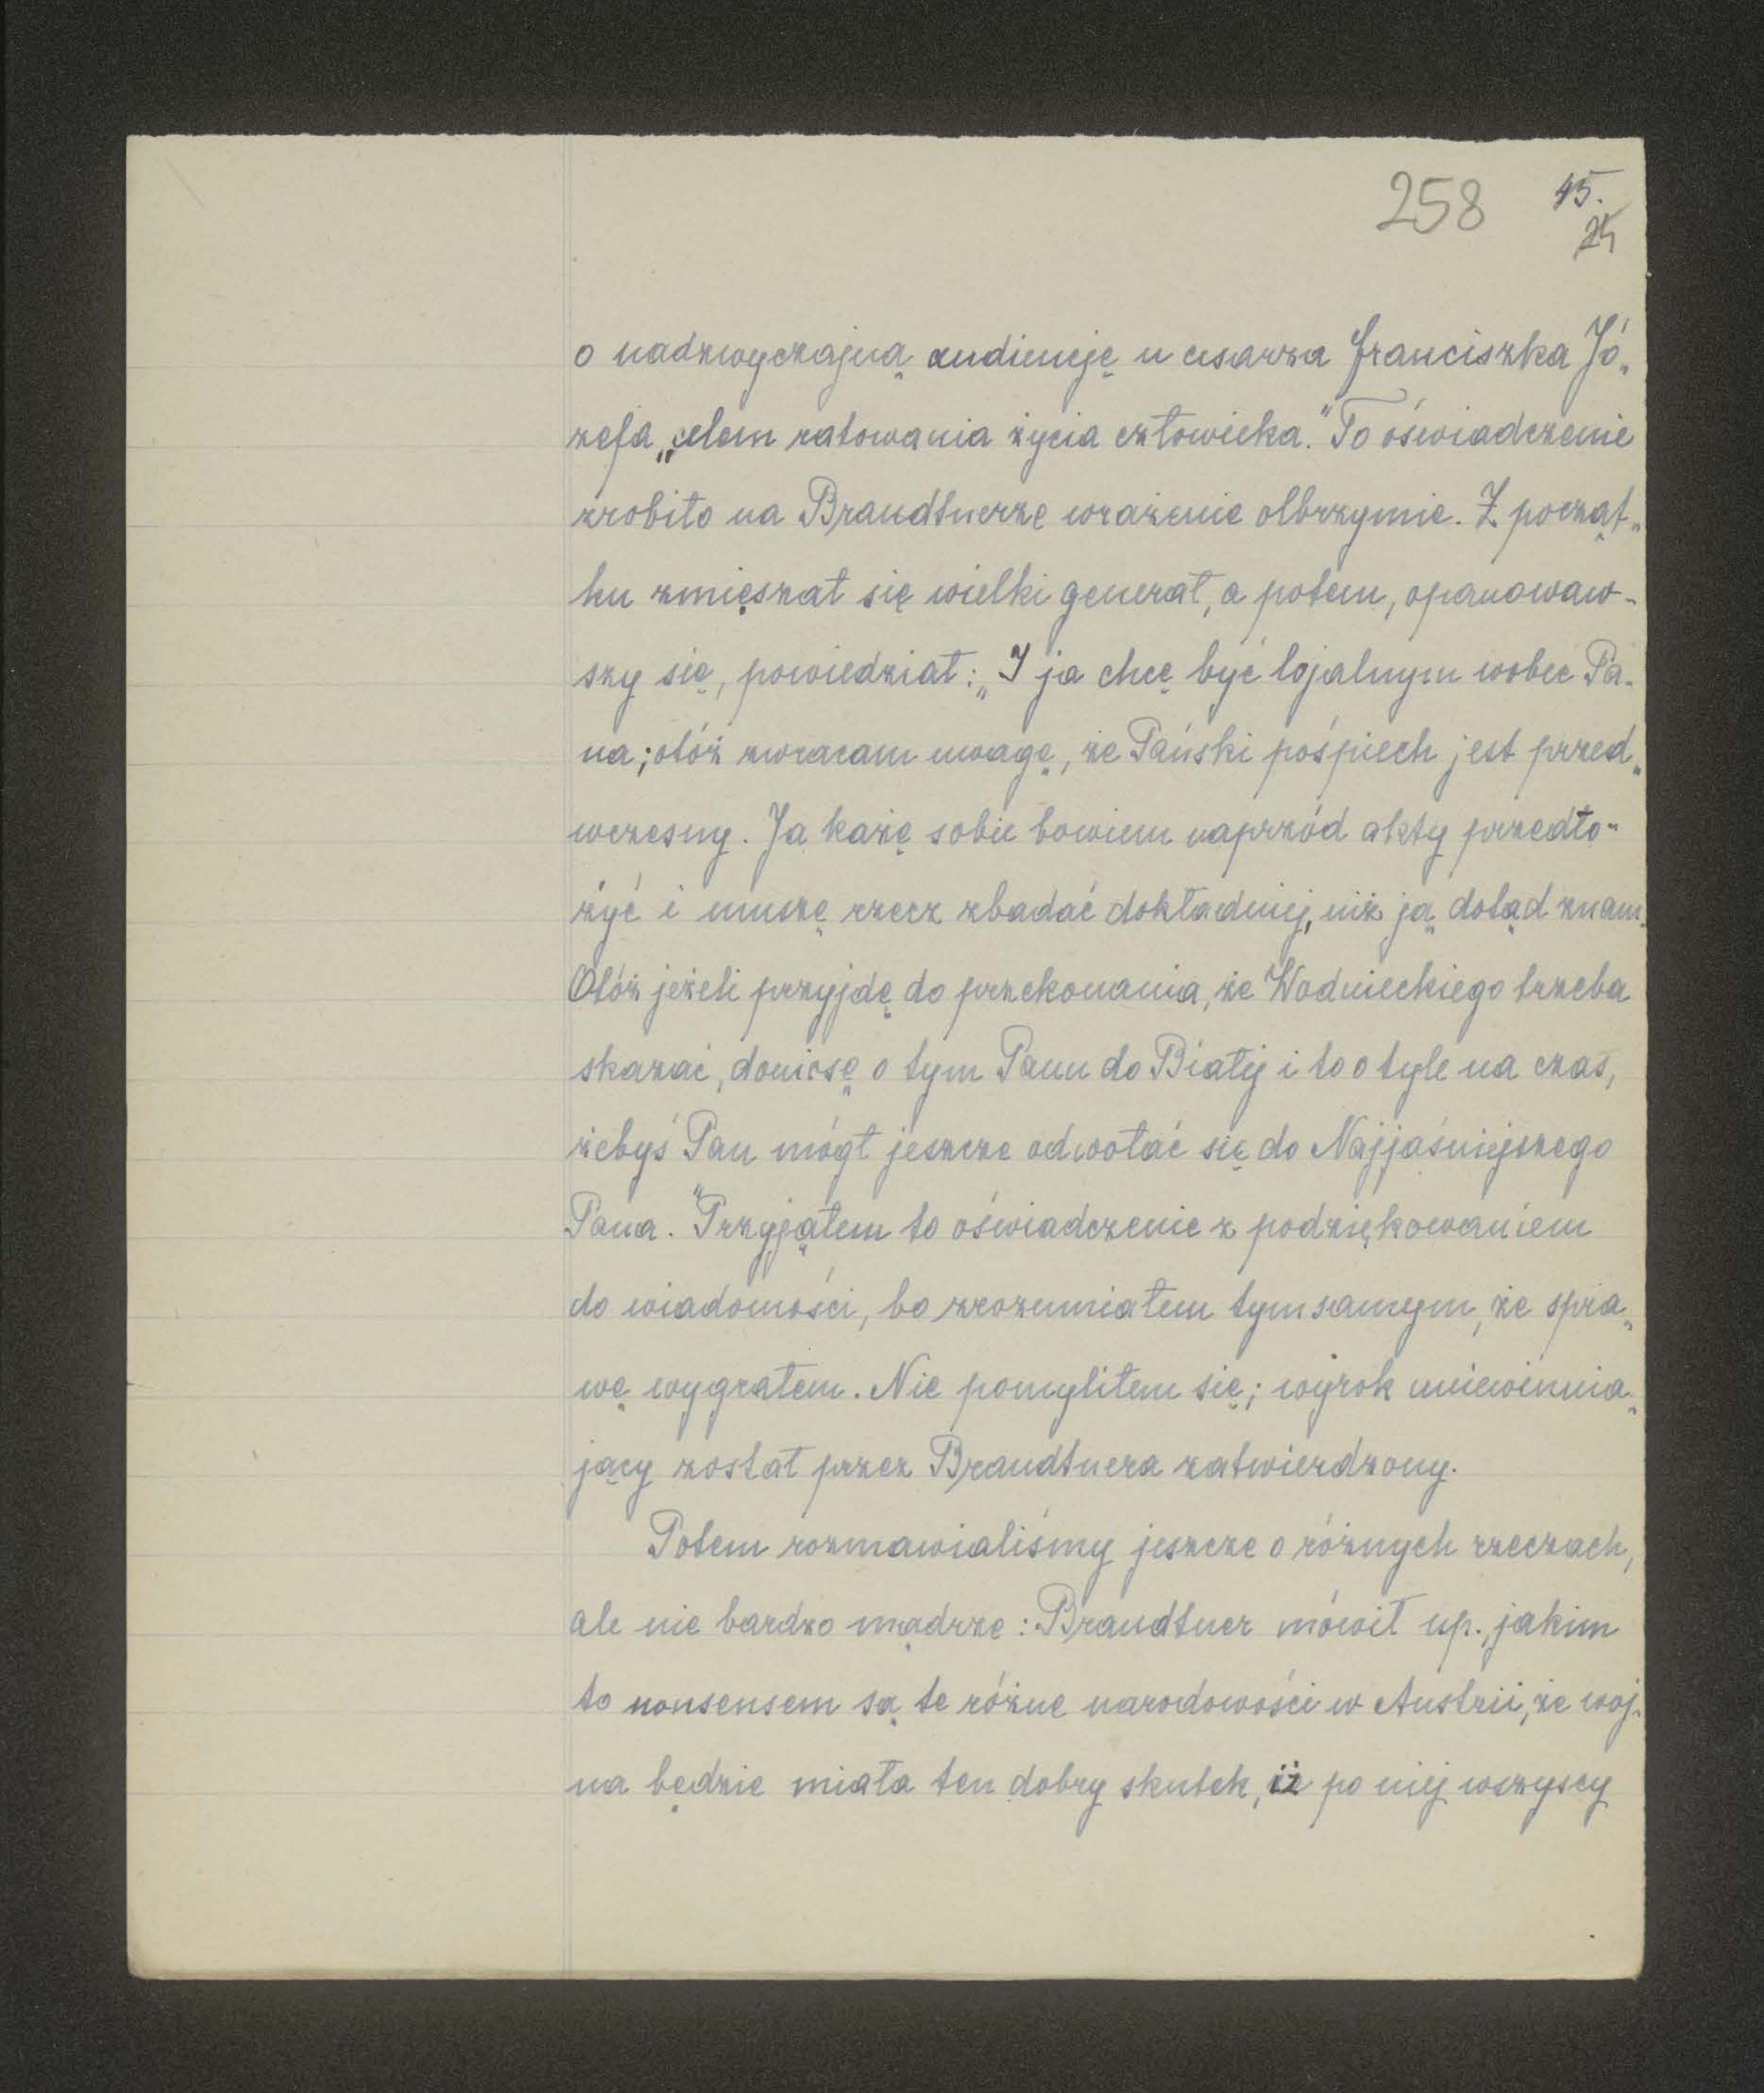 258 45.
24
o nadzwyczajną audiencję u cesarza Franciszka Jó„
zefa „celem ratowania życia człowieka." To oświadczenie
zrobiło na Brandtnerze wrażenie olbrzymie. Z począt„
ku zmięszał się wielki generał, a potem, opanowaw-
szy się, powiedział: „I ja chcę być lojalnym wobec Pa-
na; otóż zwracam uwagę, że Pański pośpiech jest przed„
wczesny. Ja każę sobie bowiem naprzód akty przedło-
żyć i muszę rzecz zbadać dokładniej, niż ją dotąd znam.
Otóż jeżeli przyjdę do przekonania, że Wodnieckiego trzeba
skazać, doniosę o tym Panu do Białej i to o tyle na czas,
żebyś Pan mógł jeszcze odwołać się do Najjaśniejszego
Pana." Przyjąłem to oświadczenie z podziękowaniem
do wiadomości, bo zrozumiałem tymsamym, że spra„
wę wygrałem. Nie pomyliłem się; wyrok uniewinnia„
jący został przez Brandtnera zatwierdzony.
Potem rozmawialiśmy jeszcze o różnych rzeczach,
ale nie bardzo mądrze: Brandtner mówił np., jakim
to nonsensem są te różne narodowości w Austrii, że woj-
na będzie miała ten dobry skutek, iż po niej wszyscy